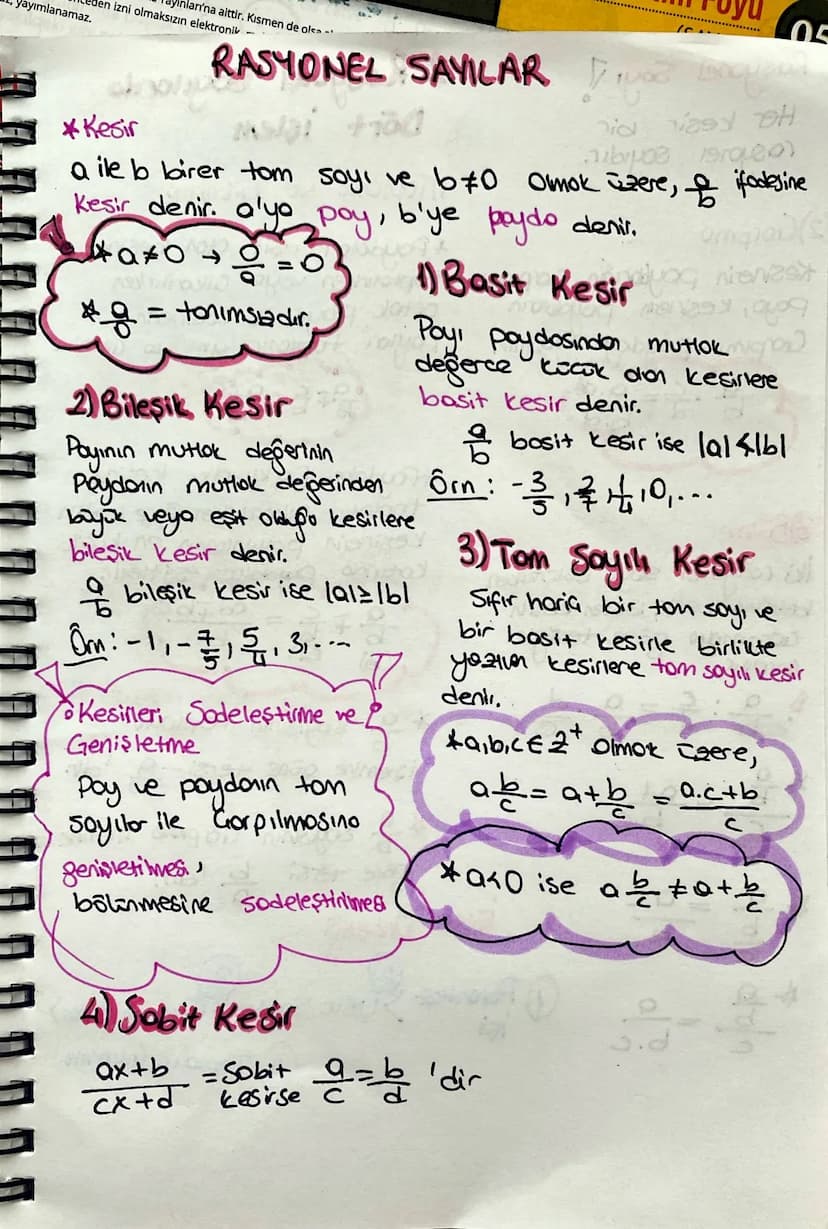 yayımlanamaz.
Yayınları'na aittir. Kısmen de olsa
önceden izni olmaksızın elektronik
Föyü
05
RASYONEL SAYILAR
*Kesir
a ile b birer tam sayı ve b≠0 olmak üzere, a/b ifadesine
kesir denir. a'ya pay, b'ye payda denir.
*a≠0 → 0/a = 0
*a/0 = tanımsızdır.
1) Basit Kesir
Payı paydasından mutlak
değerce küçük olan kesirlere
basit kesir denir.
a/b basit kesir ise |a|<|b|
Örn: -3/5, 2/7, 1/4, 0, ...
2) Bileşik Kesir
Payının mutlak değerinin
Paydanın mutlak değerinden
büyük veya eşit olduğu kesirlere
bileşik kesir denir.
a/b bileşik kesir ise |a|≥|b|
Örn: -1, -7/5, 5/4, 3, ...
3) Tam Sayılı Kesir
Sıfır hariç bir tam sayı ve
bir basit kesirle birlikte
yazılan kesirlere tam sayılı kesir
denir.
*a,b,c ∈ Z⁺ olmak üzere,
a b/c = a+b/c = a.c+b/c
*a<0 ise a b/c ≠ a+b/c
Kesirleri Sadeleştirme ve
Genişletme
Pay ve paydanın tam
sayılar ile çarpılmasına
genişletilmesi,
bölünmesine sadeleştirilmesi
4) Sabit Kesir
ax+b/cx+d = Sabit kesirse a/c = b/d 'dir